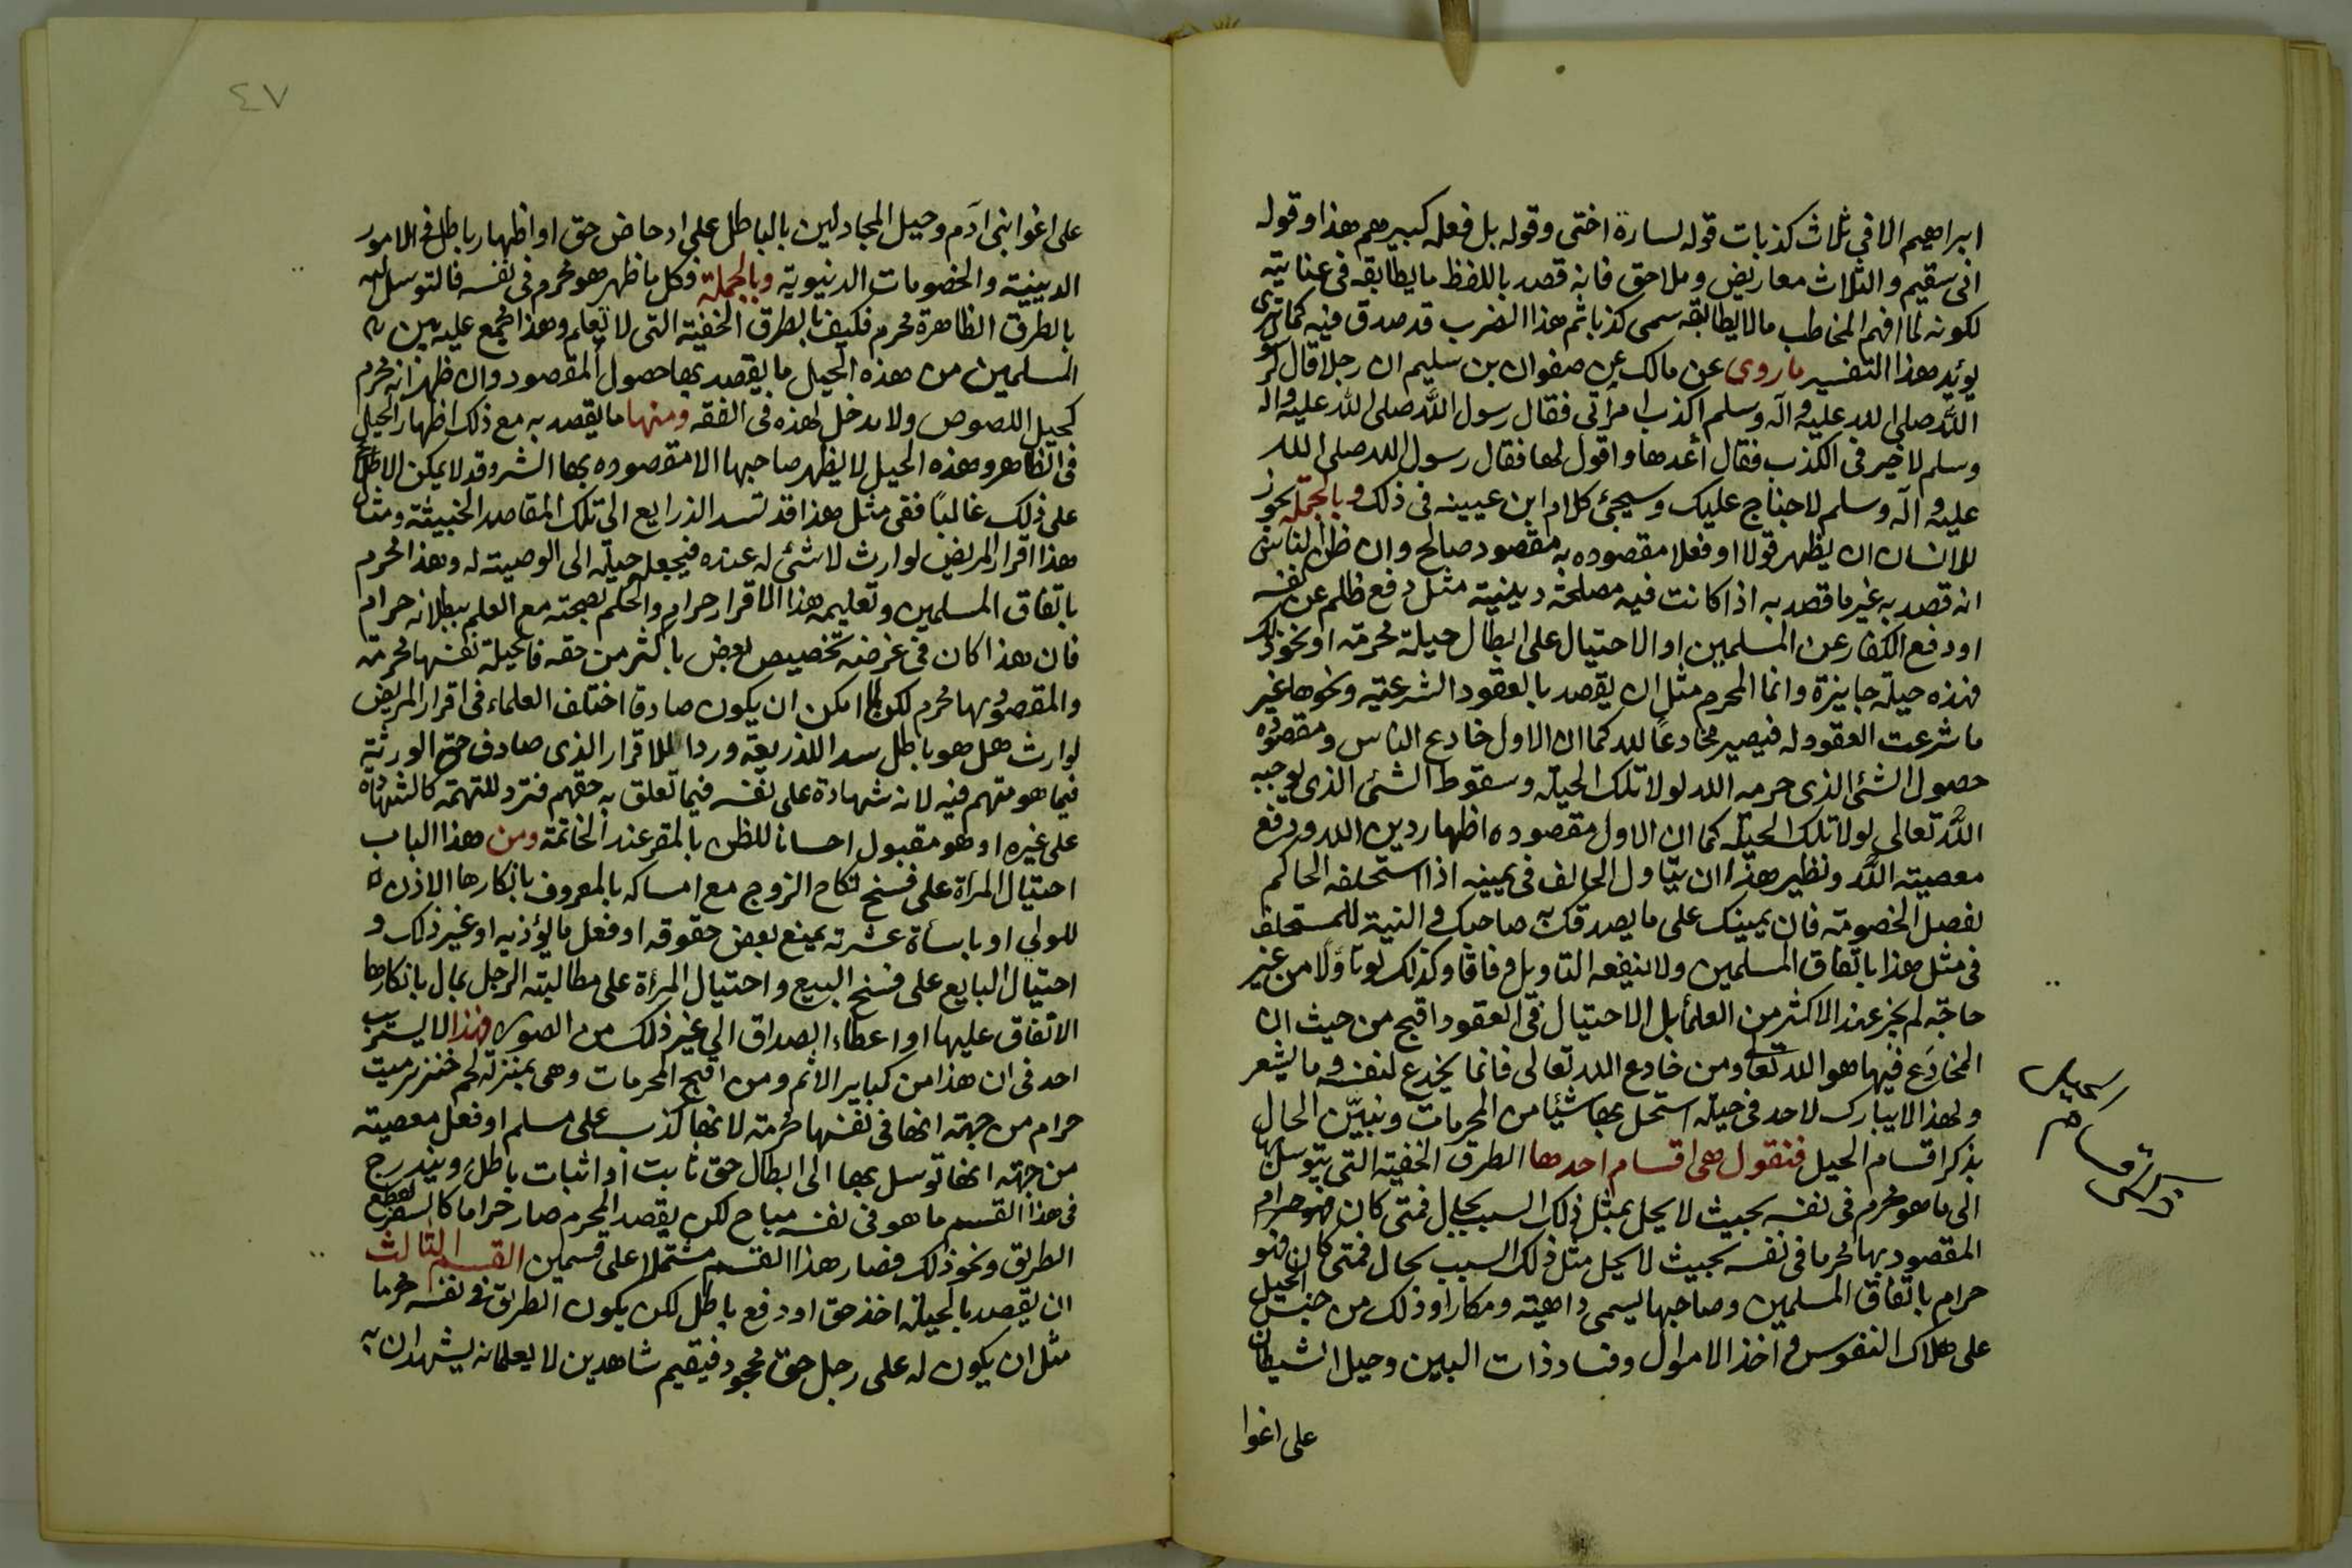 ابراهيم الا فى ثلاث كذبات قوله لسارة اختى وقوله بل فعله كبيرهم هذا وقوله
انى سقيم والثلاث معاريض وملاحق فانه قصد باللفظ ما يطابقه فى عنايته
لكونه لما افهم المخاطب ما لا يطابقه سمى كذبا ثم هذا الضرب قد صدق فيه كما ترى
يؤيد هذا التفسير ما روى عن مالك عن صفوان بن سليم ان رجلا قال لرسو
الله صلى الله عليه وآله وسلم اكذب امرأتى فقال رسول الله صلى الله عليه واله
وسلم لا خير فى الكذب فقال أعدها واقول لها فقال رسول الله صلى الله
عليه وآله وسلم لا جناح عليك وسيجئ كلام ابن عيينه فى ذلك وبالجملة يجوز
للانسان ان يظهر قولا او فعلا مقصوده به مقصود صالح وان ظن الناس
انه قصد به غير ما قصد به اذا كانت فيه مصلحة دينية مثل دفع ظلم عن نفسه
او دفع الكفار عن المسلمين او الاحتيال على ابطال حيلة محرمة او نحو ذلك
فهذه حيلة جايزة وانما المحرم مثل ان يقصد بالعقود الشرعية ونحوها غير
ما شرعت العقود له فيصير مخادعاً لله كما ان الاول خادع الناس ومقصوده
حصول الشئ الذى حرمه الله لولا تلك الحيلة وسقوط الشئ الذى يوجبه
الله تعالى لولا تلك الحيلة كما ان الاول مقصوده اظهار دين الله ودفع
معصية الله ونظير هذا ان يتاول الحالف فى يمينه اذا استحلفه الحاكم
لفصل الخصومة فان يمينك على ما يصدقك به صاحبك والنية للمستحلف
فى مثل هذا باتفاق المسلمين ولا ينفعه التاويل وفاقا وكذلك لو تأولا من غير
حاجة لم يجز عند الاكثر من العلمأ بل الاحتيال فى العقود اقبح من حيث ان
المخادَع فيها هو الله تعا ومن خادع الله تعالى فانما يخدع لنفسه وما يشعر
ولهذا لا يبارك لاحد فى حيلة استحل بها شيئا من المحرمات ونبيّن الحال
بذكر اقسام الحيل فنقول هى اقسام احدها الطرق الخفية التى يتوسل بها
الى ما هو محرم فى نفسه بحيث لا يحل بمثل ذلك السبب بحال فمتى كان فهو حرام
المقصود بها محرما فى نفسه بحيث لا يحل مثل ذلك السبب بحال فمتى كان فهو
حرام باتفاق المسلمين وصاحبها يسمى داهية ومكارا وذلك من جنس الحيل
على هلاك النفوس واخذ الاموال وفساد ذات البين وحيل الشيطان
على اغوا
٤٧
على اغوا بنى آدم وحيل المجادلين بالباطل على ادحاض حق او اظهار باطل فى الامور
الدينية والخصومات الدنيوية وبالجملة فكل ما ظهر هو محرم فى نفسه فالتوسل اليه
بالطرق الظاهرة محرم فكيف بالطرق الخفية التى لا تعلم وهذا مجمع عليه بين
المسلمين من هذه الحيل ما يقصد بها حصول المقصود وان ظهر انه محرم
كحيل اللصوص ولا مدخل لهذه فى الفقه ومنها ما يقصد به مع ذلك اظهار الحيل
فى الظاهر وهذه الحيل لا يظهر صاحبها الا مقصوده بها الشر وقد لا يمكن الاطلاع
على ذلك غالباً ففى مثل هذا قد تسد الذرايع الى تلك المقاصد الخبيثة ومثال
هذا اقرار المريض لوارث لا شئ له عنده فيجعله حيلة الى الوصية له وهذا محرم
باتفاق المسلمين وتعليمه هذا الاقرار حرام والحكم بصحته مع العلم ببطلانه حرام
فان هذا كان فى غرضه تخصيص بعض باكثر من حقه فالحيلة نفسها محرمة
والمقصود بها محرم لكن لما امكن ان يكون صادقا اختلف العلماء فى اقرار المريض
لوارث هل هو باطل سدا للذريعة وردا للاقرار الذى صادف حق الورثة
فيما هو متهم فيه لانه شهادة على نفسه فيما تعلق به حقهم فترد للتهمة كالشهادة
على غيره او هو مقبول احسانا للظن بالمقر عند الخاتمة ومن هذا الباب
احتيال المرأة على فسخ نكاح الزوج مع امساكه بالمعروف بانكارها الاذن
للولى او باساءة عشرته بمنع بعض حقوقه او فعل ما يؤذيه او غير ذلك و
احتيال البايع على فسخ البيع واحتيال المرأة على مطالبة الرجل بمال بانكارها
الاتفاق عليها او اعطاء الصداق الى غير ذلك من الصور فهذا لا يستريب
احد فى ان هذا من كباير الاثم ومن اقبح المحرمات وهى بمنزلة لحم خنزير ميت
حرام من جهة انها فى نفسها محرمة لانها كذب على مسلم او فعل معصية
من جهة انها توسل بها الى ابطال حق ثابت او اثبات باطل ويندرج
فى هذا القسم ما هو فى نفسه مباح لكن بقصد المحرم صار حراما كالسفر لقطع
الطريق ونحو ذلك فصار هذا القسم مشتملا على قسمين القسم الثالث
ان يقصد بالحيلة اخذ حق او دفع باطل لكن يكون الطريق فى نفسه محرما
مثل ان يكون له على رجل حق مجحود فيقيم شاهدين لا يعلمانه يشهدان به